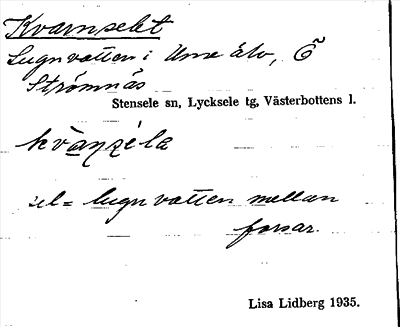 Kvarnselet
Lugnvatten i Ume älv, Ö
Strömnäs
Stensele sn, Lycksele tg, Västerbottens l.
kvàn̥séla
sel = lugnvatten mellan
forsar.
Lisa Lidberg 1935.